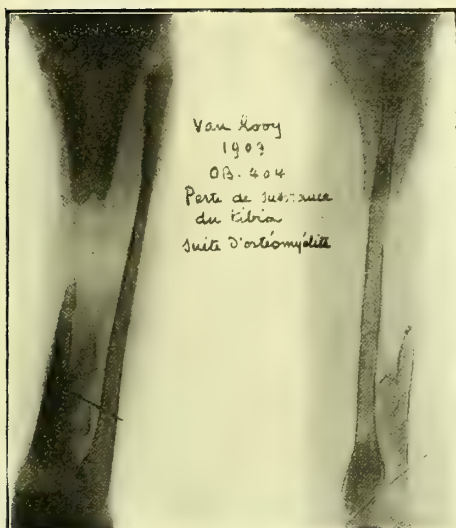 Van Rooy
1903
OB. 404
Perte de substance
du tibia
suite d'ostéomyélite